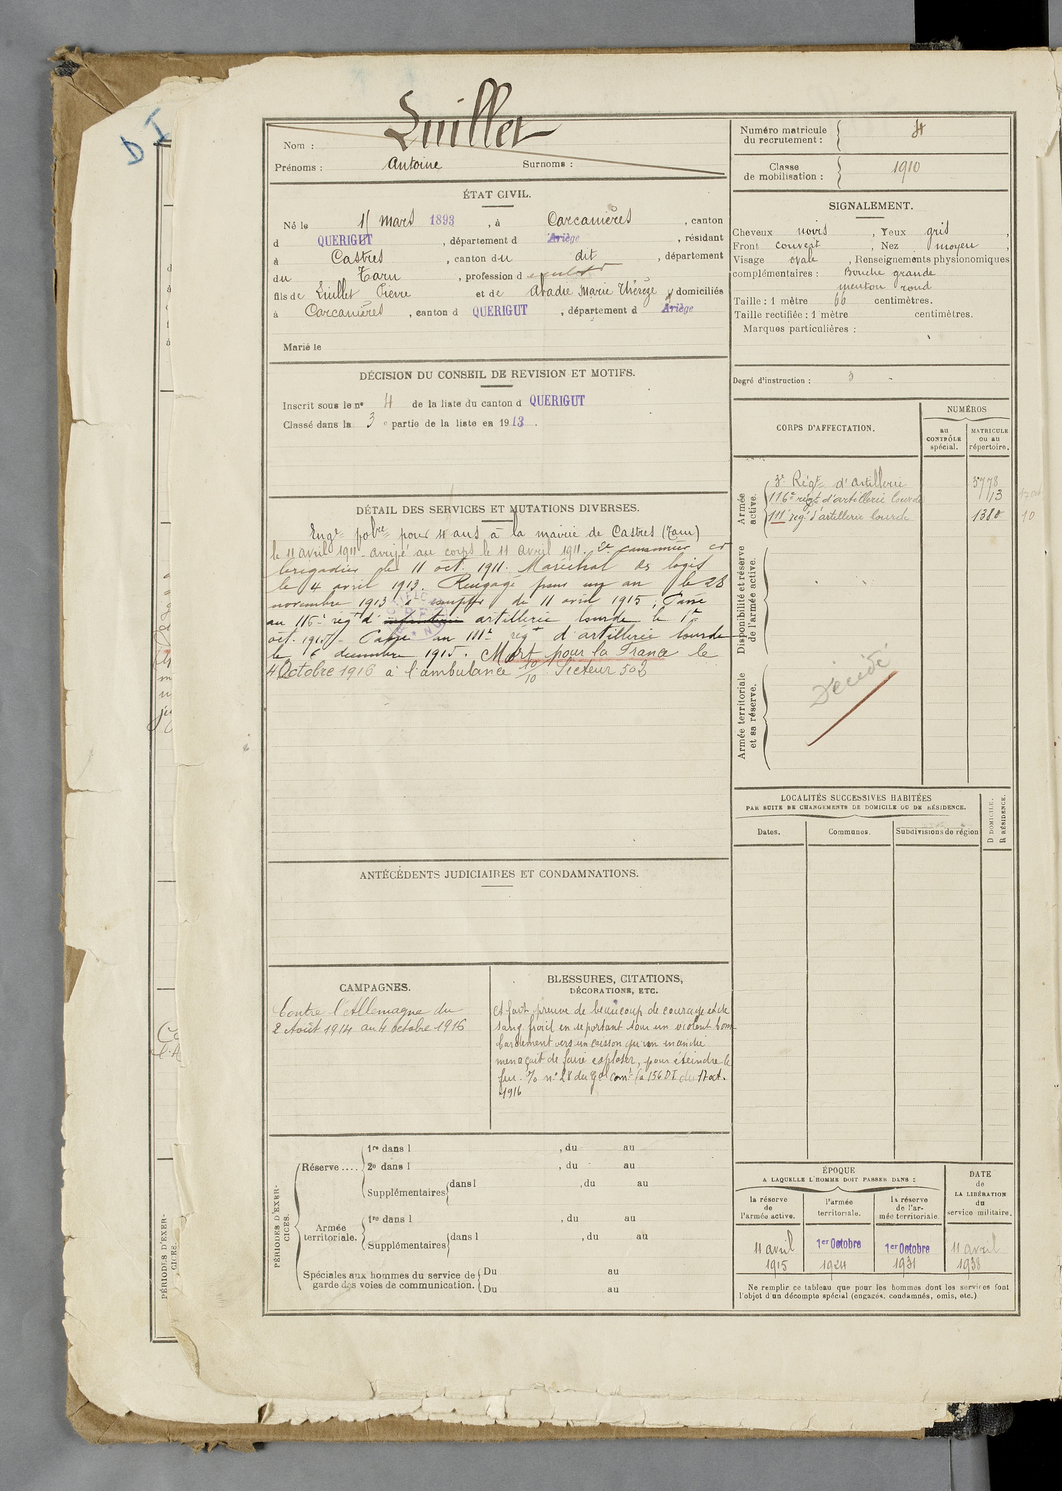 D I
Luillet
Nom :
Prénoms : Antoine Surnoms :
Numéro matricule
du recrutement :
Classe
de mobilisation : 1910
ÉTAT CIVIL.
Né le 1 mars 1893 , à Carcanières , canton
d QUERIGUT , département d Ariège , résidant
à Castres , canton du dit , département
du Tarn , profession d
fils de Luillet Pierre et de Abadie Marie Thérèse , domiciliés
à Carcanières , canton d QUERIGUT , département d Ariège
Marié le
SIGNALEMENT.
Cheveux noirs , Yeux gris ,
Front couvert , Nez moyen ,
Visage ovale , Renseignements physionomiques
complémentaires : Bouche grande
menton rond
Taille : 1 mètre 60 centimètres.
Taille rectifiée : 1 mètre centimètres.
Marques particulières :
Degré d'instruction : 3
DÉCISION DU CONSEIL DE REVISION ET MOTIFS.
Inscrit sous le nº 4 de la liste du canton d QUERIGUT
Classé dans la 3 e partie de la liste en 1913 .
CORPS D'AFFECTATION.
NUMÉROS
AU CONTRÔLE spécial.
MATRICULE OU AU répertoire.
Armée active.
3e Régt d'Artillerie 5778
116e régt d'artillerie lourde 13
111e régt d'artillerie lourde 1380
Disponibilité et réserve de l'armée active.
Armée territoriale et sa réserve.
Décédé
DÉTAIL DES SERVICES ET MUTATIONS DIVERSES.
Engé pour 4 ans à la mairie de Castres (Tarn)
le 11 avril 1911. arrivé au corps le 11 avril 1911. 2e canonnier et
brigadier le 11 oct. 1911. Maréchal des logis
le 4 avril 1913. Rengagé pour un an le 28
novembre 1913 à compter du 11 avril 1915. Passé
au 116e régt d' artillerie lourde le 1er
oct. 1915. Passé au 111e régt d'artillerie lourde
le 16 décembre 1915. Mort pour la France le
4 Octobre 1916 à l'ambulance 10/10 Secteur 503
LOCALITÉS SUCCESSIVES HABITÉES
PAR SUITE DE CHANGEMENTS DE DOMICILE OU DE RÉSIDENCE.
Dates. Communes. Subdivisions de région
D DOMICILE.
R RÉSIDENCE.
ANTÉCÉDENTS JUDICIAIRES ET CONDAMNATIONS.
CAMPAGNES.
Contre l'Allemagne du
2 Août 1914 au 4 octobre 1916
BLESSURES, CITATIONS,
DÉCORATIONS, ETC.
A fait preuve de beaucoup de courage et de
sang froid en se portant sous un violent bom
bardement vers un caisson qu'un incendie
menaçait de faire exploser, pour éteindre le
feu. O/ nº 28 du Gal Comt la 156 DI du 17 oct.
1916
PÉRIODES D'EXERCICES.
Réserve ....
1re dans l , du au
2e dans l , du au
Supplémentaires dans l , du au
Armée
territoriale.
1re dans l , du au
Supplémentaires dans l , du au
Spéciales aux hommes du service de
garde des voies de communication.
Du au
Du au
ÉPOQUE
A LAQUELLE L'HOMME DOIT PASSER DANS :
la réserve
de
l'armée active.
l'armée
territoriale.
la réserve
de l'ar-
mée territoriale.
DATE
de
LA LIBÉRATION
du
service militaire.
11 avril
1915
1er Octobre
1924
1er Octobre
1931
11 avril
1938
Ne remplir ce tableau que pour les hommes dont les services font
l'objet d'un décompte spécial (engagés, condamnés, omis, etc.)
PÉRIODES D'EXER-
CICES.